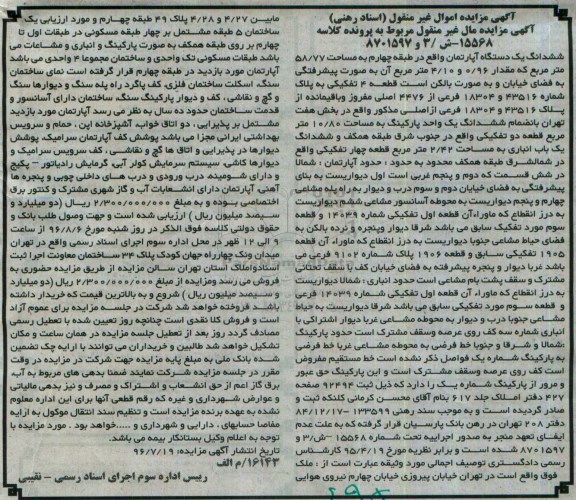 آگهی مزایده اموال غیر منقول (اسناد رهنی)
آگهی مزایده مال غیر منقول مربوط به پرونده کلاسه
۱۵۵۶۸-ش /۳ و ۸۷۰۱۵۹۷
ششدانگ یک دستگاه آپارتمان واقع در طبقه چهارم به مساحت ۵۸/۷۷
متر مربع که مقدار ۰/۹۶ و ۴/۱۰ متر مربع آن به صورت پیشرفتگی
به فضای خیابان و به صورت بالکن است قطعه ۴ تفکیکی به پلاک
شماره ۴۳۵۱۶ و ۱۸۳۰۴ فرعی از ۴۴۷۶ اصلی مفروز وباقیمانده از
پلاک ۴۳۵۱۶ و ۱۸۳۰۴ فرعی ازاصلی مذکور واقع در بخش هفت
تهران بانضمام ششدانگ یک واحد پارکینگ به مساحت ۱۰/۸۰ متر
مربع قطعه دو تفکیکی واقع در جنوب شرق طبقه همکف و ششدانگ
یک باب انباری به مساحت ۲/۴۲ متر مربع قطعه چهار تفکیکی واقع
در شمالشرق طبقه همکف محدود به حدود : حدود آپارتمان : شمالا
در شش قسمت که دوم و پنجم غربی است اول دیواریست به بنای
پیشرفتگی به فضای خیابان دوم و سوم درب و دیوار به راه پله مشاعی
چهارم و پنجم دیواریست به محوطه آسانسور مشاعی ششم دیواریست
به درز انقطاع که ماوراء آن قطعه اول تفکیکی شماره ۱۴۰۳۹ و قطعه
سوم مورد تفکیک سابق می باشد شرقا دیوار وپنجره و نرده بالکن به
فضای حیاط مشاعی جنوبا دیواریست به درز انقطاع که ماوراء آن قطعه
۱۹۰۵ تفکیکی سابق و قطعه ۱۹۰۶ پلاک شماره ۹۱۰۲ فرعی می
باشد غربا دیوار و پنجره پیشرفته به فضای خیابان کف با سقف تحتانی
مشترک و سقف پشت بام مشاعی است حدود انباری : شمالا دیواریست
به درز انقطاع که ماوراء آن قطعه اول تفکیکی شماره ۱۴۰۳۹ فرعی
و قطعه سوم مورد تفکیکی سابق می باشد شرقا دیواریست به حیاط
مشاعی جنوبا درب و دیوار به محوطه مشاعی غربا دیوار اشتراکی با
انباری شماره سه کف روی عرصه وسقف مشترک است حدود پارکینگ
:شمالا و شرقا و جنوبا خط فرضی به محوطه مشاعی غربا خط فرضی
به پارکینگ شماره یک فواصل ذکر نشده است خط مستقیم مفروض
است کف روی عرصه وسقف مشترک است و این پارکینگ حق عبور
و مرور از پارکینگ شماره یک را دارد که ذیل ثبت ۹۲۴۹۴ صفحه
۴۲۷ دفتر املاک جلد ۶۱۷ بنام آقای محسن کرمانی کلنکه ثبت و
صادر گردیده است و به موجب سند رهنی ۱۳۳۵۹۹ -۸۴/۱۲/۱۷
دفتر ۲۰۸ تهران در رهن بانک پارسیان قرار گرفته که به علت عدم
ایفای تعهد منجر به صدور اجراییه تحت شماره ۱۵۵۶۸ -ش/۳ و
۸۷۰۱۵۹۷ شده است و برابر نظریه مورخ ۹۵/۴/۱۹ کارشناس
رسمی دادگستری توصیف اجمالی مورد وثیقه عبارت است از : ملک
فوق واقع است در تهران خیابان پیروزی خیابان چهارم نیروی هوایی
مابین ۴/۲۷ و ۴/۲۸ پلاک ۴۹ طبقه چهارم و مورد ارزیابی یک
ساختمان ۵ طبقه مشتمل بر چهار طبقه مسکونی در طبقات اول تا
چهارم بر روی طبقه همکف به صورت پارکینگ و انباری و مشاعات می
باشد طبقات مسکونی تک واحدی و ساختمان مجموعا ۴ واحدی می باشد
آپارتمان مورد بازدید در طبقه چهارم قرار گرفته است نمای ساختمان
سنگ، اسکلت ساختمان فلزی، کف پاگرد راه پله سنگ و دیوارها سنگ
و گچ و نقاشی ، کف و دیوار پارکینگ سنگ، ساختمان دارای آسانسور و
قدمت ساختمان حدود ده سال به نظر می رسد آپارتمان مورد بازدید
مشتمل بر پذیرایی ، دو اتاق خواب آشپزخانه اپن ، حمام و سرویس
بهداشتی ایرانی مجزا می باشد پوشش کف آپارتمان سرامیک، پوشش
دیوارها در پذیرایی و اتاق ها گچ و نقاشی ، کف سرویس سرامیک و
دیوارها کاشی، سیستم سرمایش کولر آبی، گرمایش رادیاتور – پکیج
و دارای شومینه، درب ورودی و درب های داخلی چوبی و پنجره ها
آهنی. آپارتمان دارای انشعابات آب و گاز شهری مشترک و کنتور برق
اختصاصی بوده و به مبلغ ۲/۳۰۰/۰۰۰/۰۰۰ ریال (دو میلیارد و
سیصد میلیون ریال ) ارزیابی شده است و جهت وصول طلب بانک و
حقوق دولتی کلاسه فوق الذکر در روز شنبه مورخ ۹۶/۸/۶ از ساعت
۹ الی ۱۲ ظهر در محل اداره سوم اجرای اسناد رسمی واقع در تهران
میدان ونک چهارراه جهان کودک پلاک ۳۴ ساختمان معاونت اجرا ثبت
اسنادواملاک استان تهران سالن مزایده از طریق مزایده حضوری به
فروش می رسد ومزایده از مبلغ ۲/۳۰۰/۰۰۰/۰۰۰ ریال (دو میلیارد
و سیصد میلیون ریال ) شروع و به بالاترین قیمت که خریدار داشته
باشد فروخته خواهد شد شرکت در جلسه مزایده برای عموم آزاد
است و فروش کلا نقدی است چنانچه روز تعیین شده با تعطیل رسمی
مصادف گردد روز بعد از تعطیل جلسه مزایده در همان ساعت و مکان
تشکیل خواهد شد طالبین و خریداران می توانند با ارایه چک تضمین
شده بانک ملی به مبلغ پایه مزایده جهت شرکت در مزایده در وقت
مقرر در جلسه مزایده شرکت نمایند ضمنا بدهی های مربوط به آب
برق گاز اعم از حق انشعاب و اشتراک و مصرف و نیز بدهی مالیاتی
و عوارض شهرداری و غیره که رقم قطعی آنها برای این اداره معلوم
نشده به عهده برنده مزایده است و تنظیم سند انتقال موکول به ارایه
مفاصا حسابهای ، دارایی و شهرداری و .....خواهد بود . مورد مزایده با
توجه به اعلام وکیل بستانکار بیمه می باشد.
تاریخ انتشار آگهی مزایده: ۹۶/۷/۱۹
۱۶۱۴۳/م الف
رییس اداره سوم اجرای اسناد رسمی - نفیسی